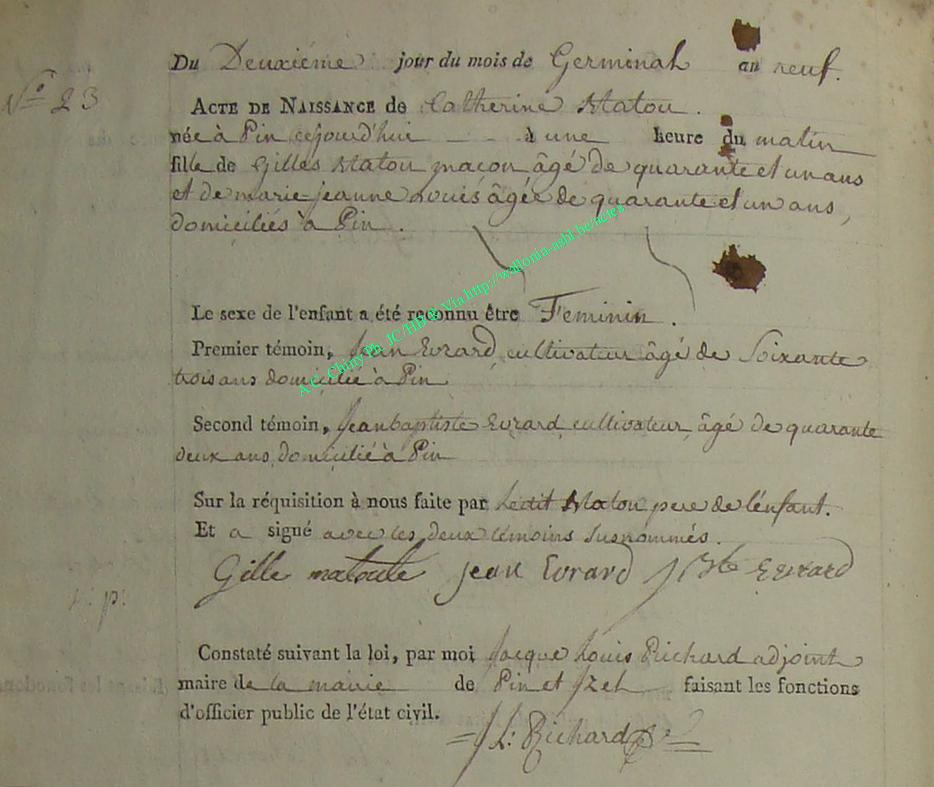 Du Deuxième jour du mois de Germinal an neuf.
N° 23
ACTE DE NAISSANCE de Catherine Matou.
née à Pin cejourd'hui à une heure du matin
fille de Gilles Matou maçon âgé de quarante et un ans
et de marie jeanne Louis âgée de quarante et un ans,
domiciliés à Pin.
Le sexe de l'enfant a été reconnu être Feminin.
Premier témoin, Jean Evrard cultivateur âgé de Soixante
trois ans domicilié à Pin
Second témoin, Jean baptiste Evrard cultivateur âgé de quarante
deux ans, domicilié à Pin
Sur la réquisition à nous faite par Ledit Matou pere de l'enfant.
Et a signé avec les deux témoins susnommés.
Gille matoule Jean Evrard J Bte Evrard
Constaté suivant la loi, par moi Jacque Louis Richard adjoint
maire de la mairie de Pin et Izel faisant les fonctions
d'officier public de l'état civil.
J L: Richard
A.C. Chiny Ph. JC HBG Via http://wallonia-asbl.be/actes